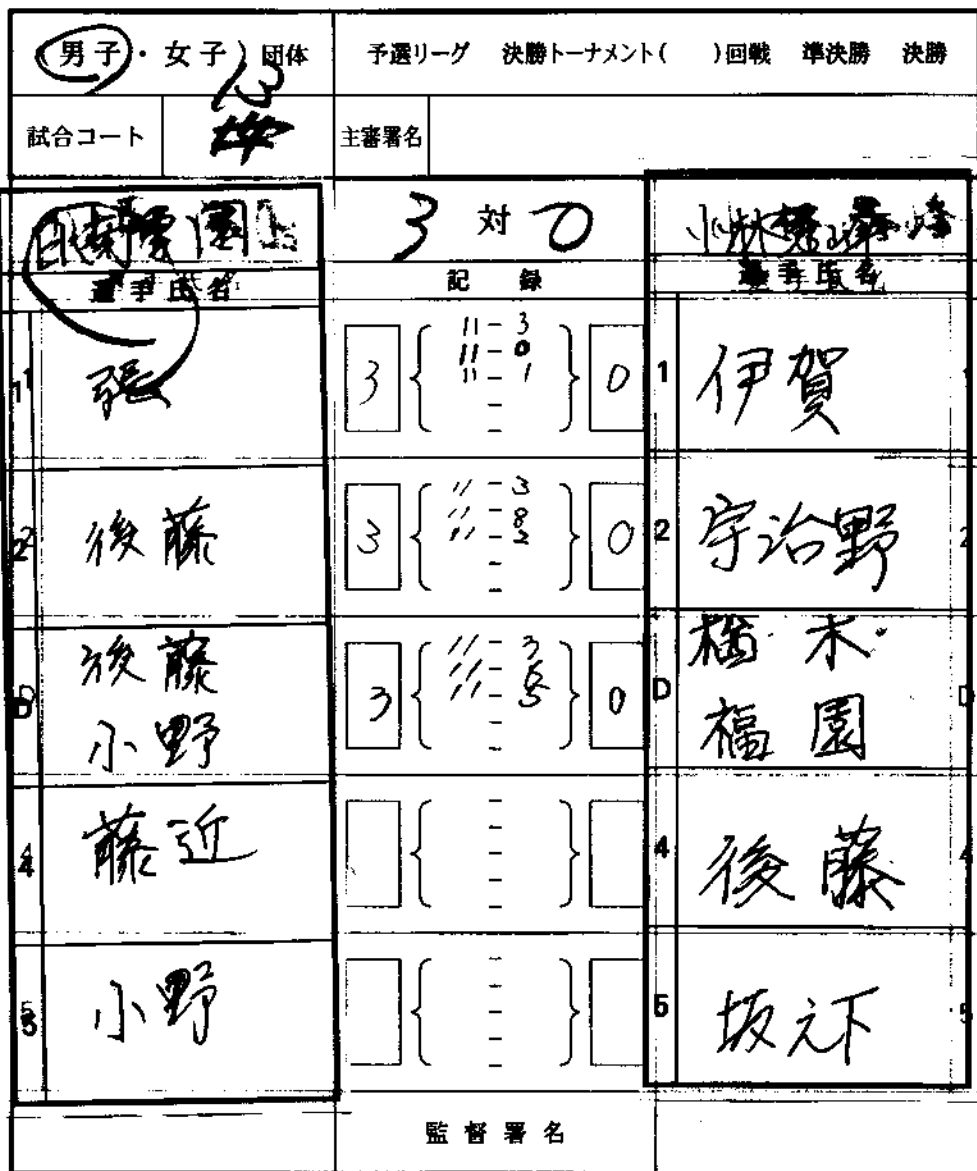 (男子・女子)団体
予選リーグ 決勝トーナメント( )回戦 準決勝 決勝
13
試合コート
主審署名
3 対 0
選手氏名
記録
選手氏名
1 張
3 { 11 - 3
11 - 0
11 - 1 } 0
1 伊賀
2 後藤
3 { 11 - 3
11 - 8
11 - 2 } 0
2 宇治野
D 後藤
小野
3 { 11 - 3
11 - 5
11 - 5 } 0
D 木
福園
4 藤近
{ - - - - } 
4 後藤
小野
{ - - - - - }
5 坂元下
監督署名